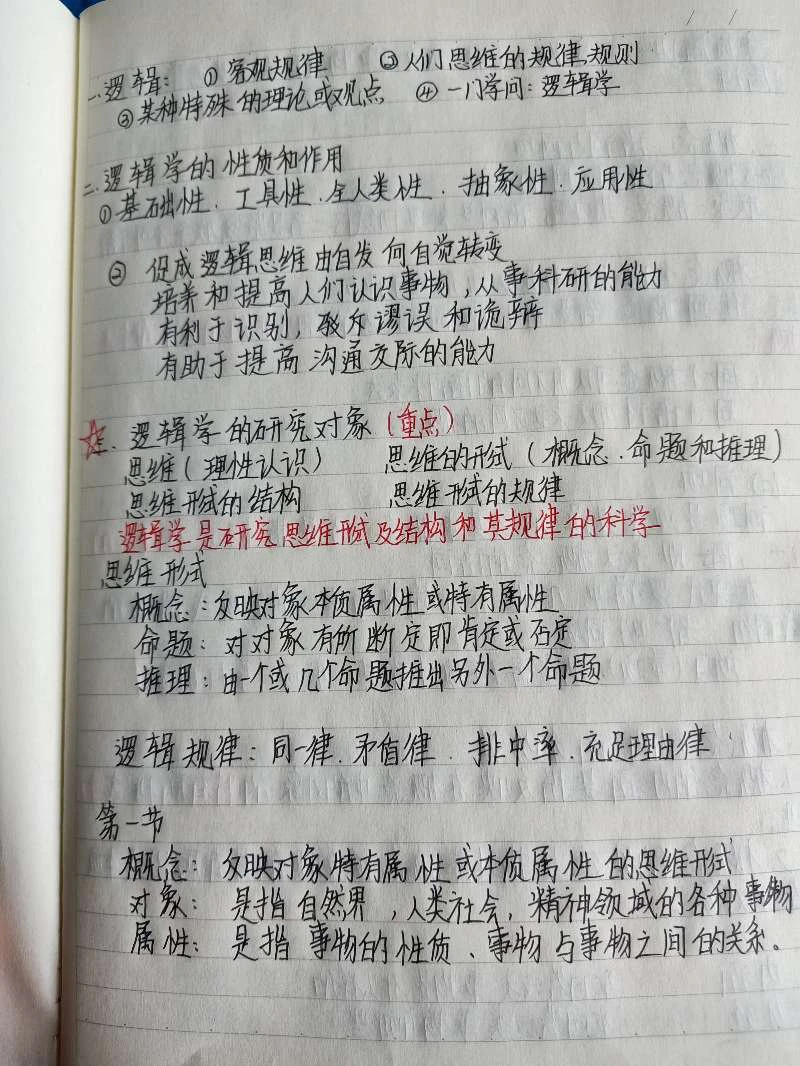 一.逻辑: ①客观规律 ②人们思维的规律.规则
③某种特殊的理论或观点 ④一门学问:逻辑学
二.逻辑学的性质和作用
①基础性.工具性.全人类性.抽象性.应用性
② 促成逻辑思维由自发向自觉转变
培养和提高人们认识事物,从事科研的能力
有利于识别,驳斥谬误和诡辨
有助于提高沟通交际的能力
☆三.逻辑学的研究对象(重点)
思维(理性认识) 思维的形式(概念.命题和推理)
思维形式的结构 思维形式的规律
逻辑学是研究思维形式及结构和其规律的科学
思维形式
概念:反映对象本质属性或特有属性
命题:对对象有所断定即肯定或否定
推理:由一个或几个命题推出另外一个命题
逻辑规律:同一律.矛盾律.排中率.充足理由律
第一节
概念:反映对象特有属性或本质属性的思维形式
对象:是指自然界,人类社会,精神领域的各种事物
属性:是指事物的性质、事物与事物之间的关系.